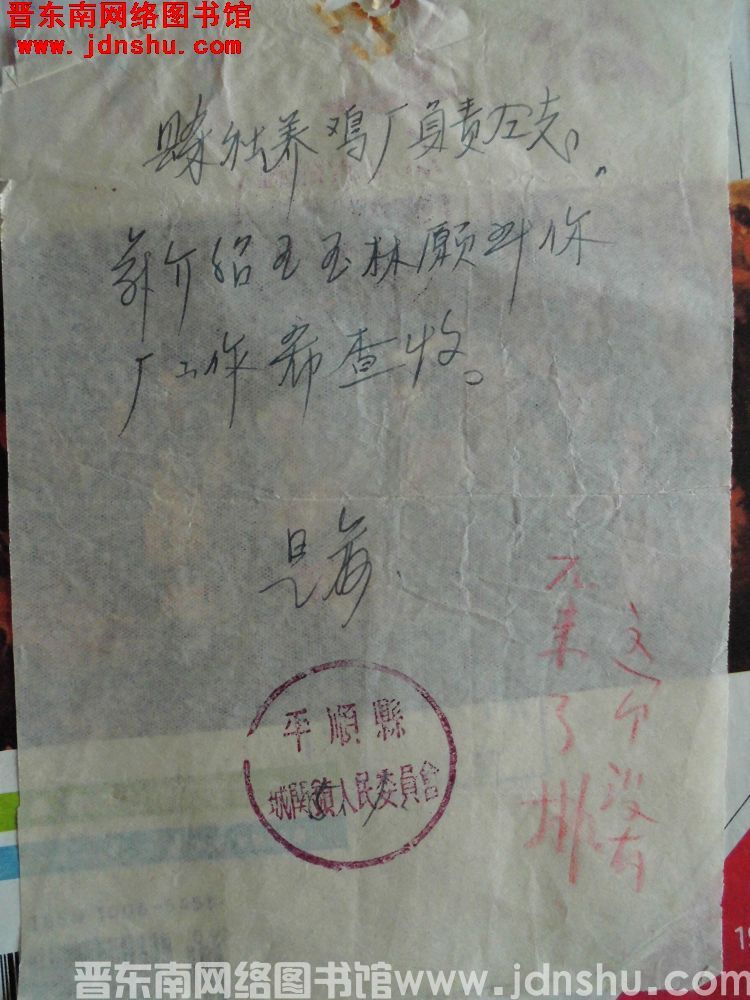 晋东南网络图书馆
www.jdnshu.com
县社养鸡厂負責同志。
兹介绍王玉林愿到你
厂工作希查收。
是荷
平順縣
城関鎮人民委員會
这个没有
不来了
晋东南网络图书馆www.jdnshu.com